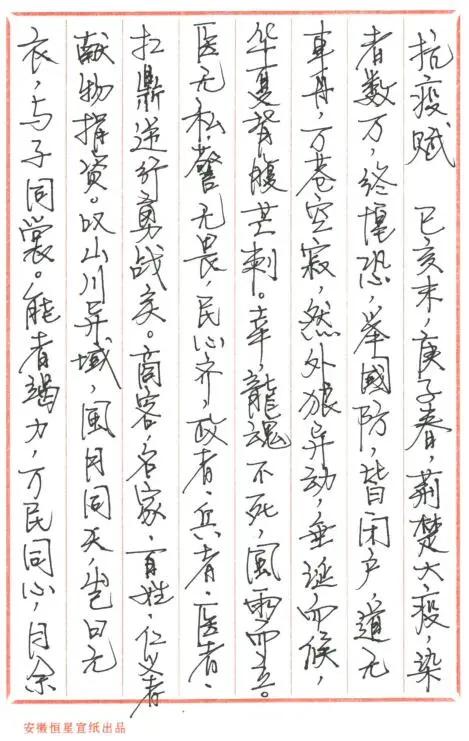 抗疫赋 己亥末,庚子春,荆楚大疫,染
者数万,终惶恐,举國防,皆闭户,道无
車舟,万巷空寂,然外狼异动,垂涎而候,
华夏背腹芒刺。幸,龍魂不死,風雨而立。
医无私,警无畏,民心齐,政者、兵者、医者、
扛鼎逆行勇战矣。商客,名家、百姓、仁义者
献物捐资。叹山川异域,風月同天,岂曰无
衣,与子同裳。能者竭力,万民同心,月余
安徽恒星宣纸出品